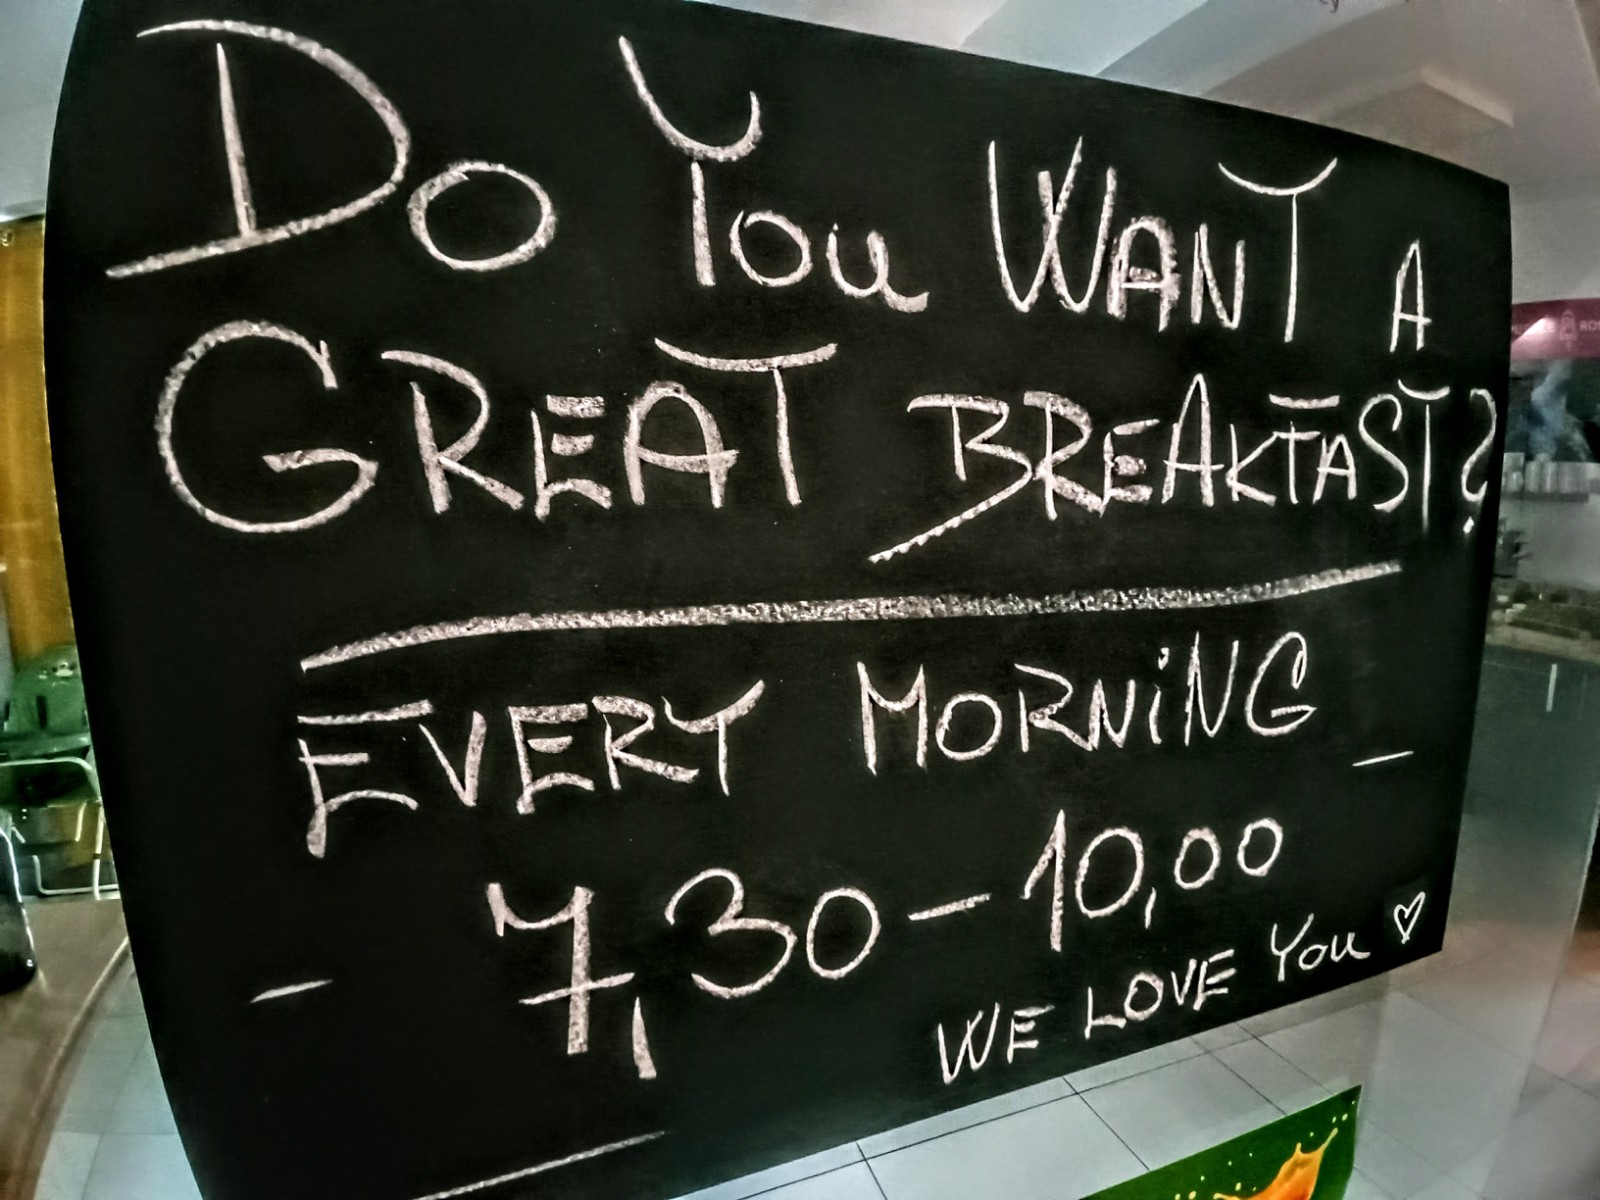 Do You WANT A
GREAT BREAKTAST?
EVERY MORNiNG
7,30 - 10,00
WE LOVE You ♡